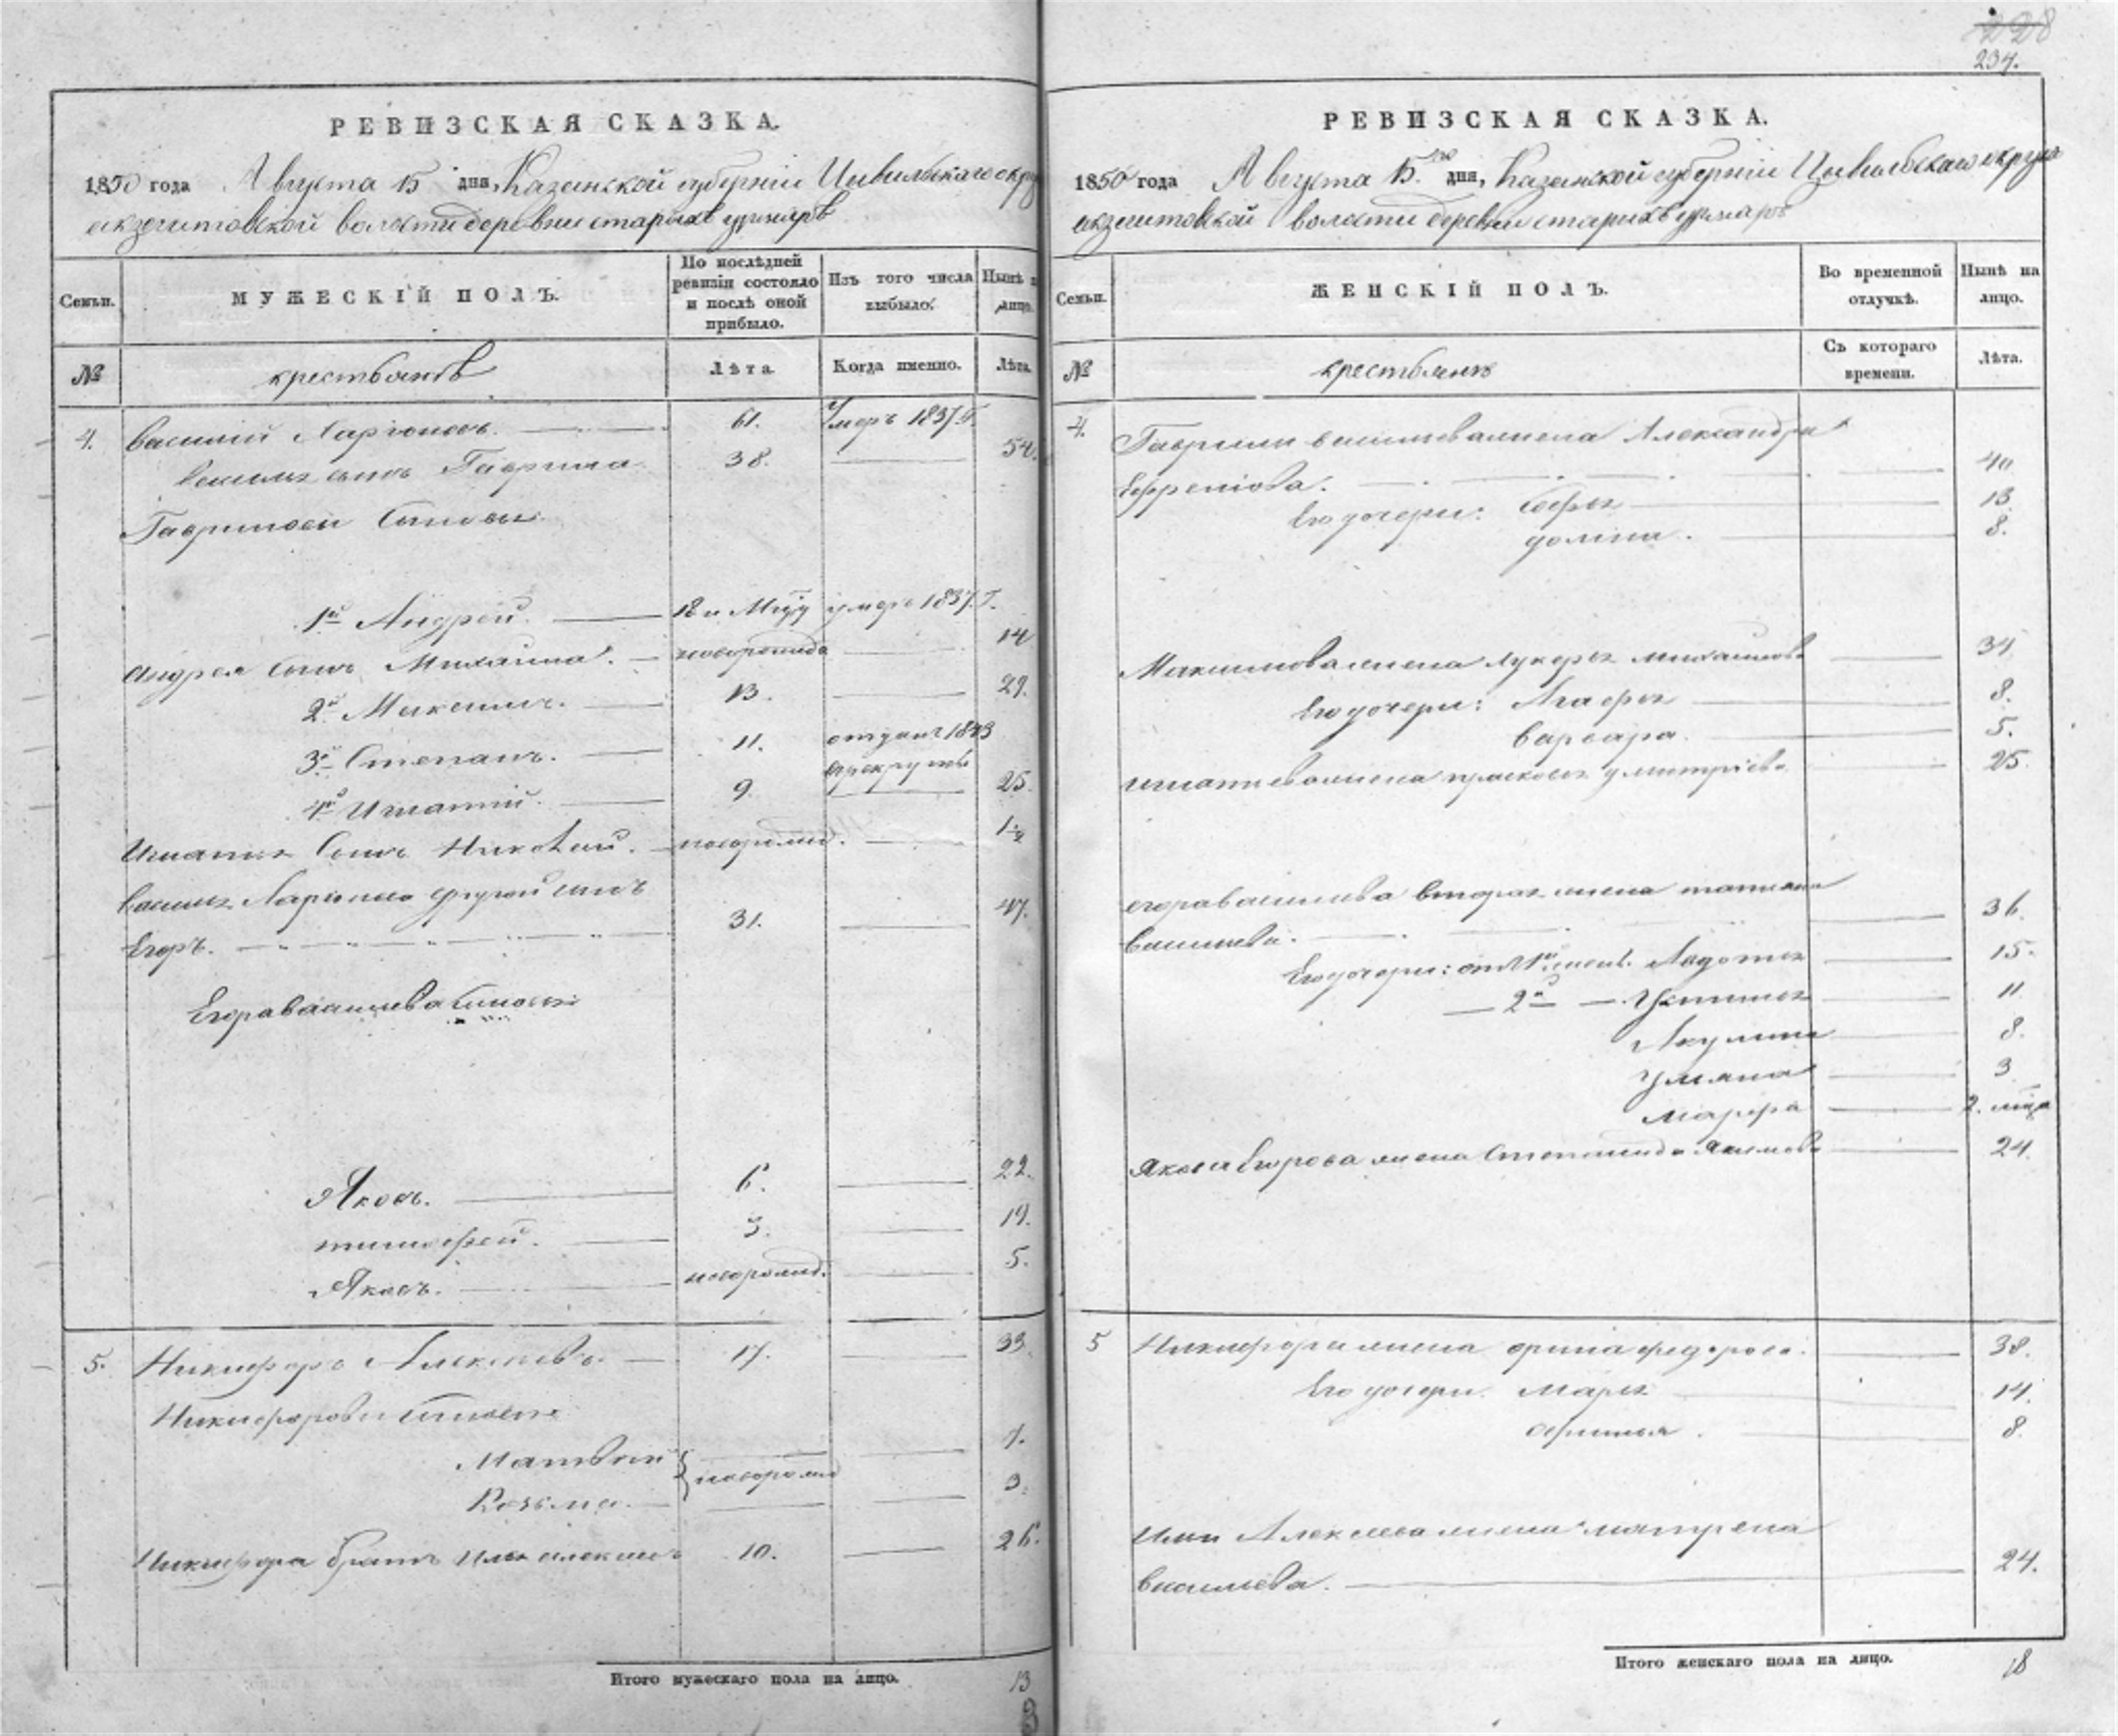 228
234.
РЕВИЗСКАЯ СКАЗКА.
1850 года Августа 15 дня, Казанской губернии Цивильскаго округа
акзегитовской волости деревни старыхъ урмаръ
Семьи.
МУЖЕСКІЙ ПОЛЪ.
По послѣдней ревизіи состояло и послѣ оной прибыло.
Изъ того числа выбыло.
Нынѣ на лицо.
№
крестьянъ
Лѣта
Когда именно.
Лѣта.
4. Василий Ларионовъ. 61. Умеръ 1837. Г.
Василья сынъ Гаврила 38. 54.
Гавриловы Сыновья
1й Андрей. 18 и умеръ 1837. Г.
Андрея Сынъ Михайла. новорожд 14
2й Максимъ. 13. 29.
3й Степанъ. 11. отданъ 1843
врекруты
4й Игнатий. 9. 25.
Игнатья Сынъ Николай. новорожд. 1
Василья Ларионова другой сынъ
Егоръ. 31. 47.
Егора васильева Сыновья
Яковъ. 6. 22.
тимофей. 3. 19.
Яковъ. новорожд. 5.
5. Никифоръ Алексеевъ. 17. 33.
Никифорови Сыновья
Матвей 7.
новорожд
Козьма. 3.
Никифора братъ Илья алексеевъ 10. 26.
Итого мужескаго пола на лицо. 13
РЕВИЗСКАЯ СКАЗКА.
1850 года Августа 15. дня, Казанской губернии Цивильскаго округа
акзегитовской волости деревни старыхъ урмаръ
Семьи.
ЖЕНСКІЙ ПОЛЪ.
Во временной отлучкѣ.
Нынѣ на лицо.
№
крестьянъ
Съ котораго времени.
Лѣта.
4. Гаврилы васильева жена Александра
Ефремова. 40
Его дочери: Софья 13.
8.
Максимова жена лукерья михайлова 34
Его дочери: Агафья 8.
Варвара. 5.
игнатиева жена прасковья дмитриева 25.
егора васильева вторая жена татьяна
Васильева. 36.
Его дочери: от 1й жены. 15.
2й Устинья 11
Акулина 8.
Ульяна 3
Марфа 2. мца
Якова Егорова жена Степанида Акимова 24.
5 Никифора жена орина федорова. 38.
Его дочери. Марья 14.
8
Ильи Алексеева жена матрена
Васильева. 24.
Итого женскаго пола на лицо. 18